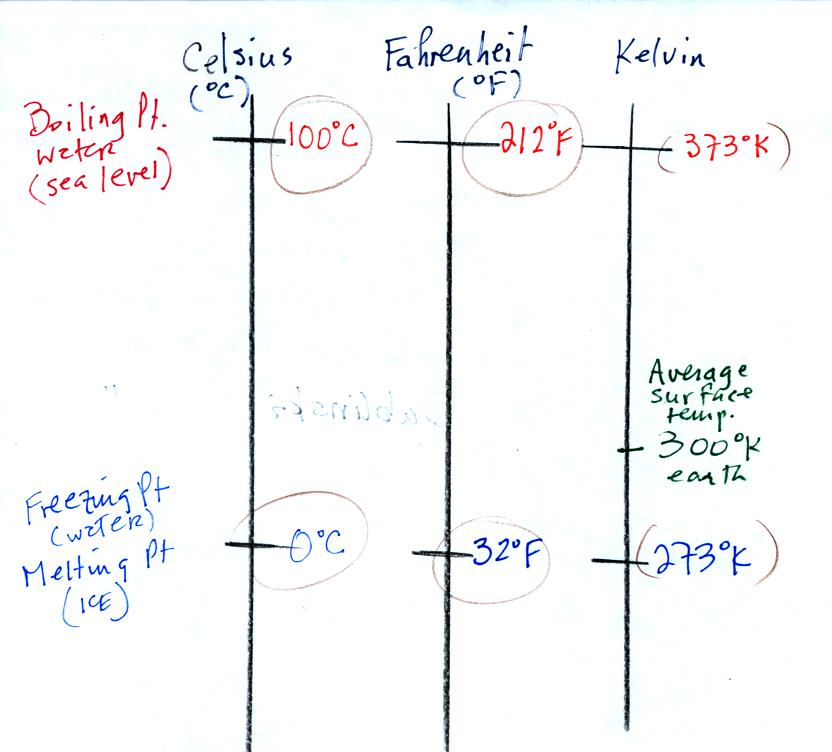 Celsius
(°C)
Fahrenheit
(°F)
Kelvin
Boiling Pt.
water
(sea level)
100°C
212°F
(373°K)
Average
surface
temp.
300°K
earth
Freezing Pt
(water)
Melting Pt
(ICE)
0°C
32°F
(273°K)